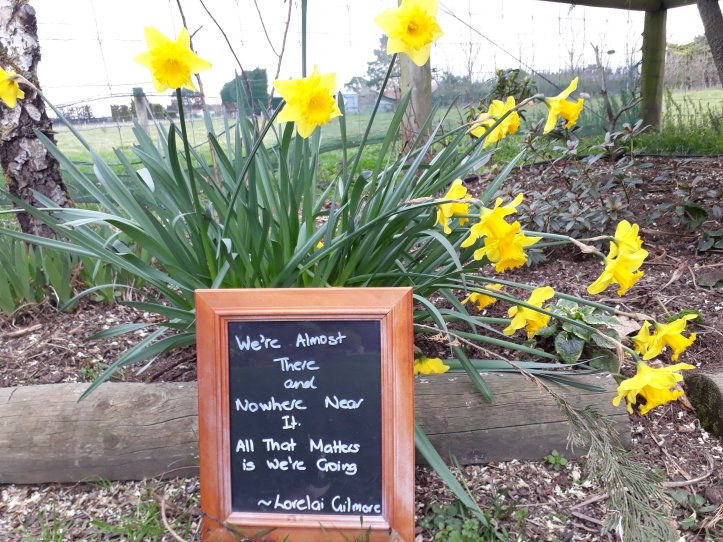 We're Almost
There
and
Nowhere Near
It.
All That Matters
is We're Going
~Lorelai Gilmore